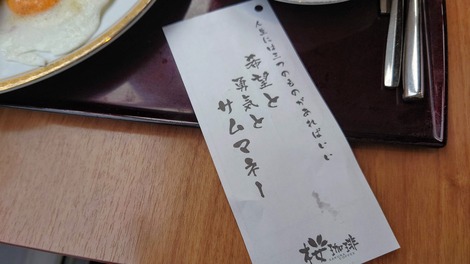 人生には三つのものがあればいい
希望と
勇気と
サムマネー
桜珈琲